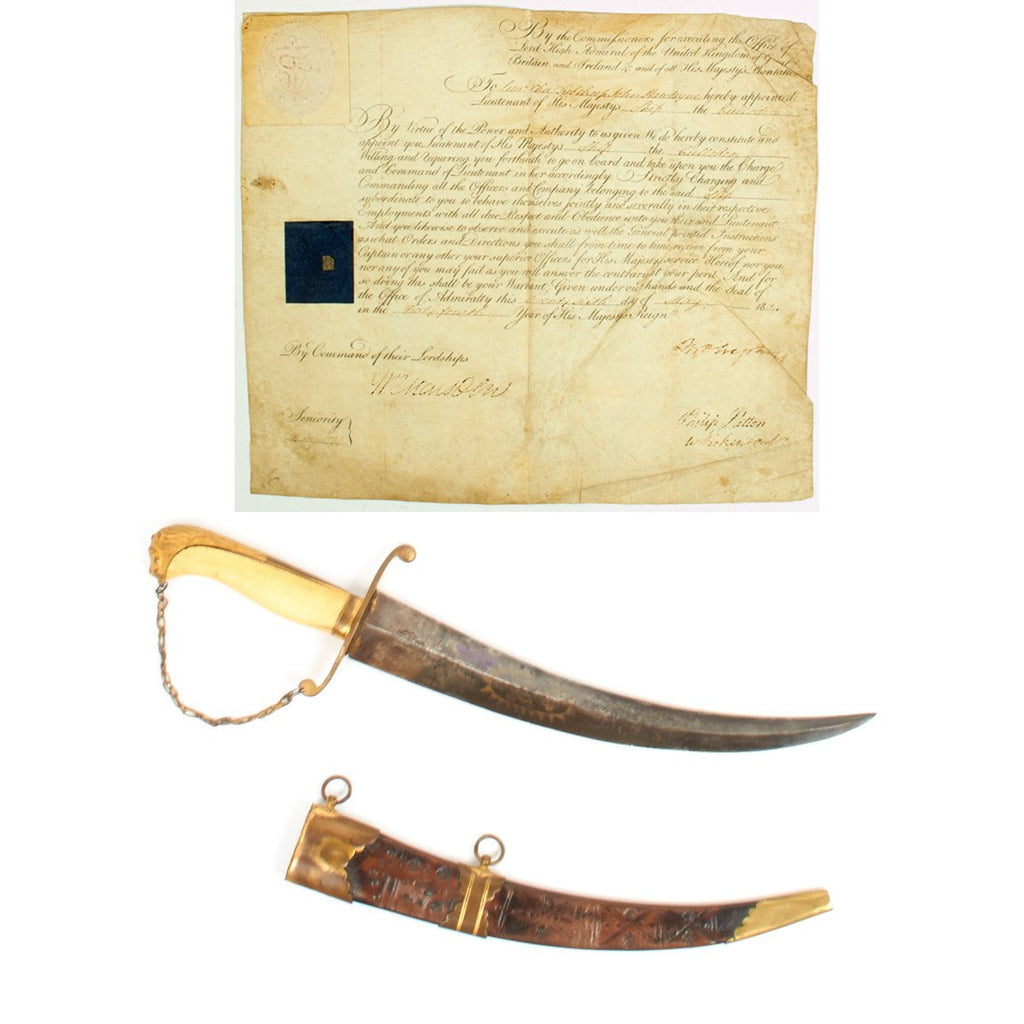 By the Commissioners for executing the Office of
Lord High Admiral of the United Kingdom of
Britain and Ireland &c and of all His Majestys Plantations
To John hereby appointed
Lieutenant of His Majestys Ship the
By Virtue of the Power and Authority to us given We do hereby constitute and
appoint you Lieutenant of His Majestys Ship the
Willing and requiring you forthwith to go on board and take upon you the Charge
and Command of Lieutenant in her accordingly Strictly Charging and
Commanding all the Officers and Company belonging to the said Ship
subordinate to you to behave themselves jointly and severally in their respective
Employments with all due Respect and Obedience unto you their said Lieutenant
And you likewise to observe and execute as well the General printed Instructions
as what Orders and Directions you shall from time to time receive from your
Captain or any other your superior Officers for His Majestys service Hereof nor you
nor any of you may fail as you will answer the contrary at your peril And for
so doing this shall be your Warrant, Given under our hands and the Seal of
the Office of Admiralty this day of May 18
in the forty fourth Year of His Majestys Reign
By Command of their Lordships
Wm Marsden
Seniority
Philip Patton